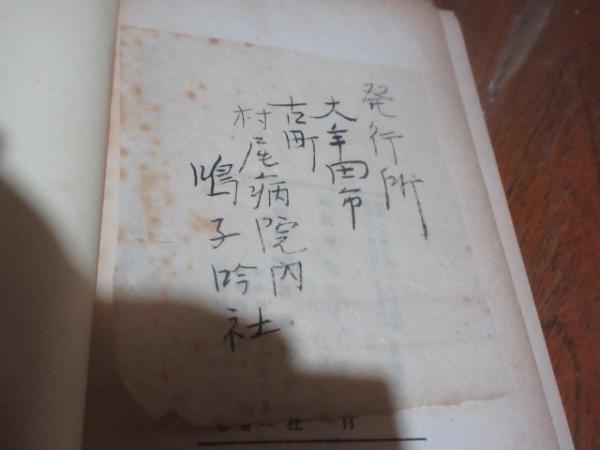 発行所
大牟田市
古町
村尾病院内
鳴子吟社